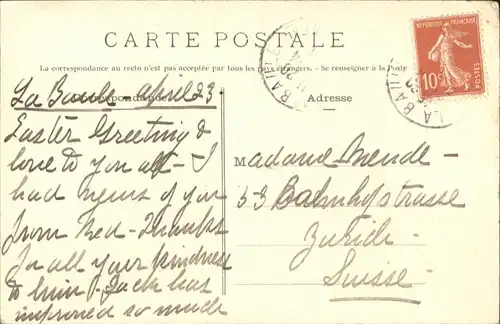 CARTE POSTALE
La correspondance au recto n'est pas acceptée par tous les pays étrangers. - Se renseigner à la Poste
Correspondance
Adresse
REPUBLIQUE FRANÇAISE
10c
POSTES
LA BAULE
LA BAULE
La Baule - april 23 -
Easter Greeting &
love to you all - I
had news of you
from Ned - Thanks
for all your kindness
to him. Jack has
improved so much
Madame Mende -
53 Bahnhofstrasse
Zurich -
Suisse -